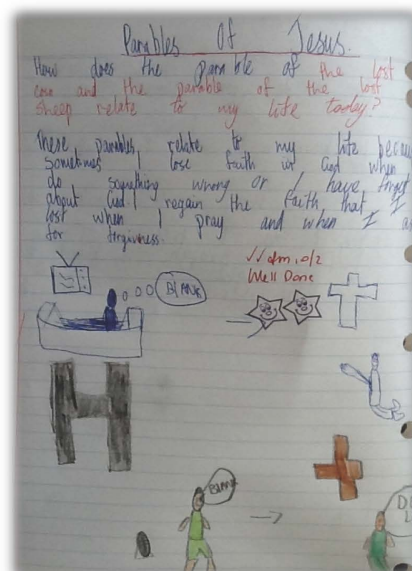 Parables Of Jesus.
How does the parable of the lost
and the parable of the lost
sheep relate to my life today?
These parables relate to my life
sometimes I lose faith in God when
do something wrong or I have forget
about God I regain the faith that I
lost when I pray and when I
for forgiveness.
Well Done
BLANK
BLANK